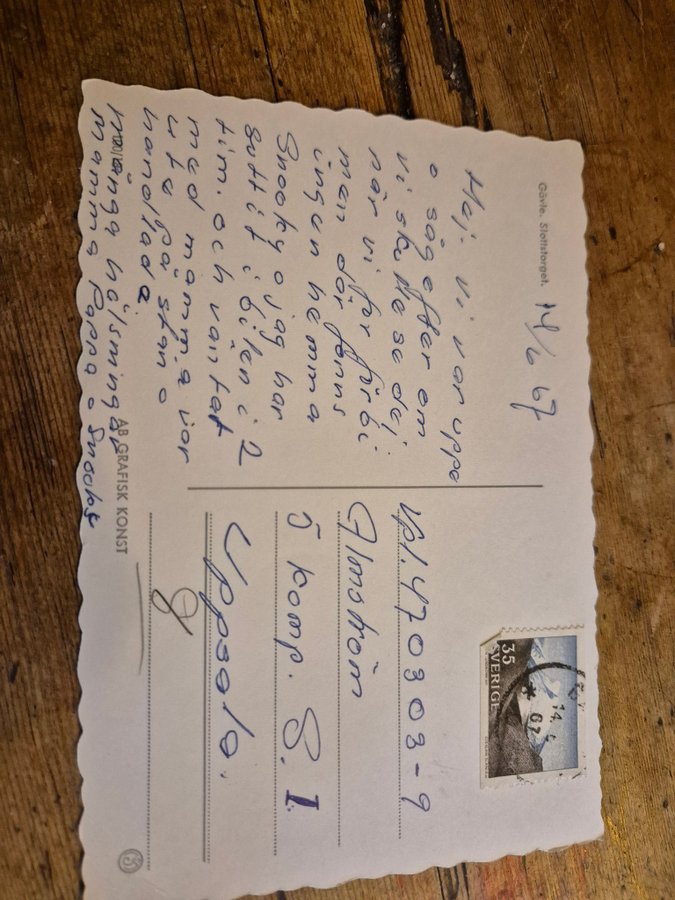 Gävle. Slottstorget.
14/6 67
Hej. Vi var uppe
o såg efter om
vi skulle se dej
när vi for förbi
men där fanns
ingen hemma
Snooky o jag har
suttit i bilen i 2
tim. och väntat
med mamma var
ute på stan o
handlade
många hälsningar
mamma Pappa o Snooky
AB GRAFISK KONST
35
SVERIGE
14. 6
67
Vpl. 470303-9
Almström
ö komp. S. I
Uppsala.